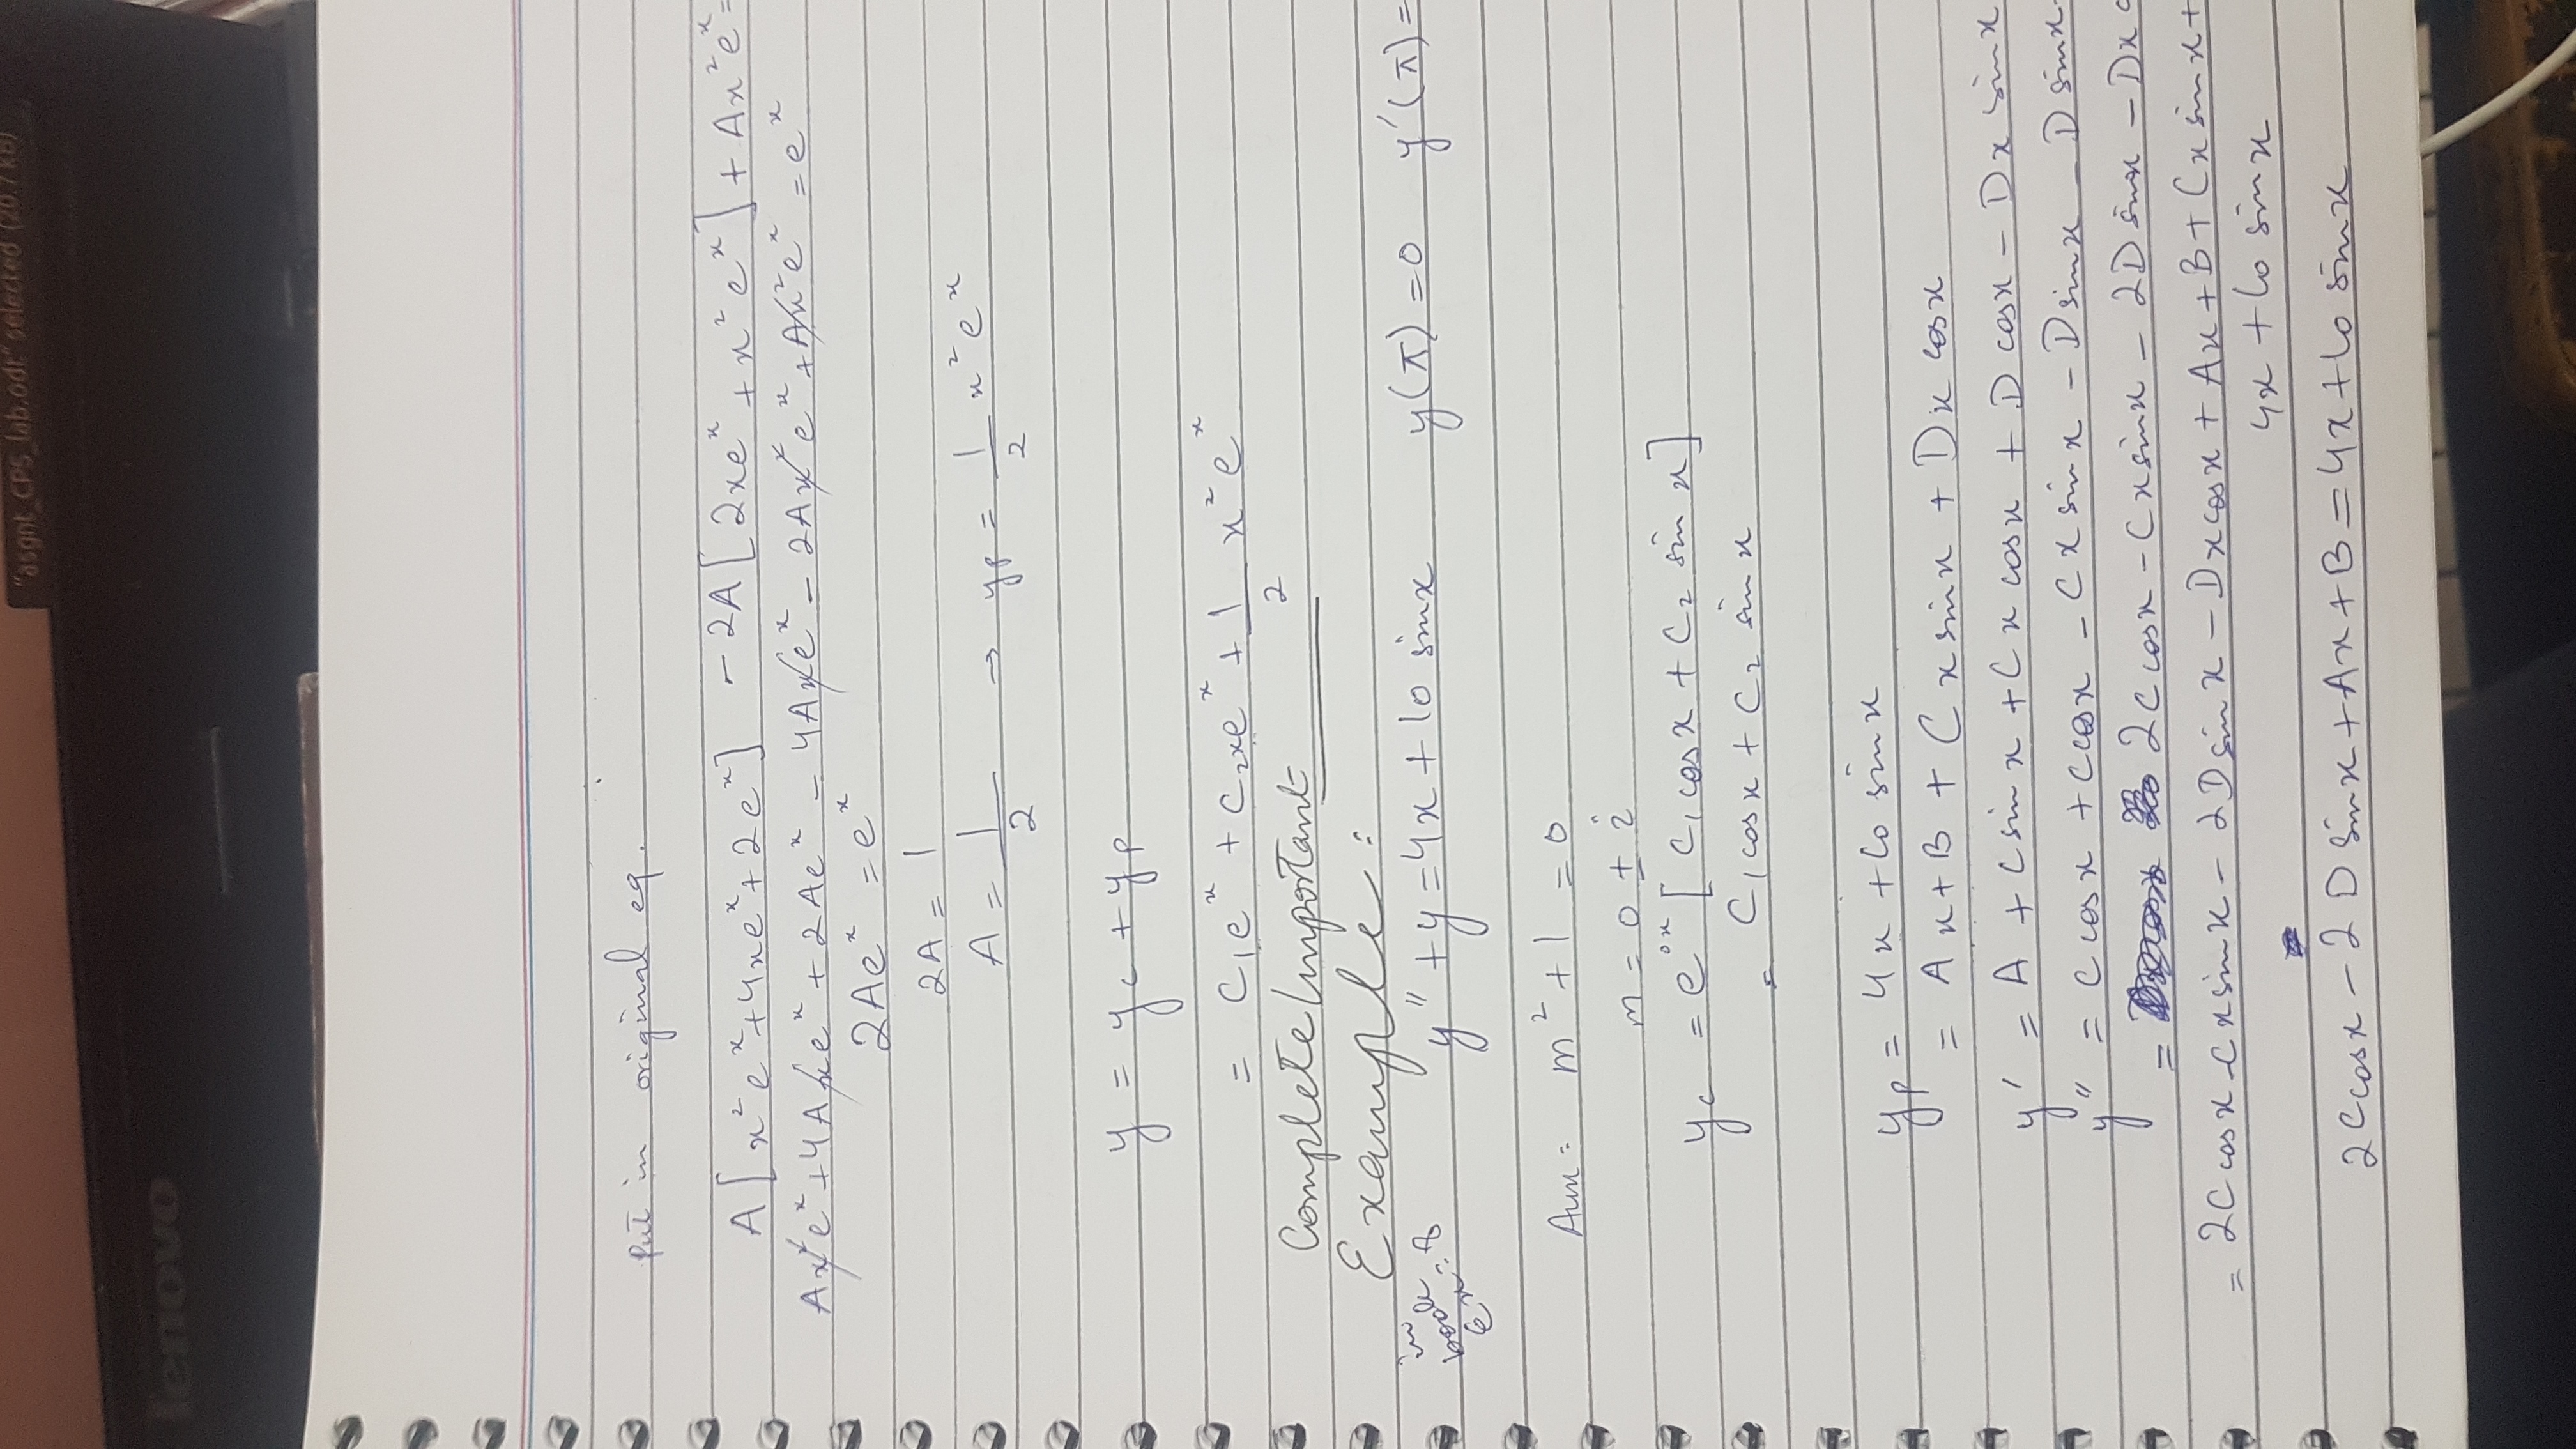 "asgnt_CPS_lab.odt" selected (20.7 kB)
lenovo
Put in original eq.
A[x²eˣ+4xeˣ+2eˣ] -2A[2xeˣ+x²eˣ]+Ax²eˣ=
Ax²eˣ+4Axeˣ+2Aeˣ-4Axeˣ-2Ax²eˣ+Ax²eˣ=eˣ
2Aeˣ=eˣ
2A=1
A=1/2 → yp=1/2 x²eˣ
y=yc+yp
=C₁eˣ+C₂xeˣ+1/2 x²eˣ
Complete/Important
Example:
in book Ex=8
y"+y=4x+10 sinx y(π)=0 y'(π)=
Aux= m²+1=0
m=0±i
yc=e⁰ˣ[C₁cosx+C₂ sin x]
=C₁cosx+C₂ sin x
yp=4x+10 sinx
=Ax+B+Cx sinx+Dx cosx
y'=A+C sin x+Cx cosx+D cosx-Dx sinx
y"=C cosx+C cosx-Cx sin x-D sinx-D sinx-
=2C cosx-Cx sinx-2D sinx-Dx c
=2C cosx-Cx sinx-2D sin x-Dx cosx+Ax+B+Cx sinx+
4x+10 sinx
2C cosx-2D sinx+Ax+B=4x+10 sinx